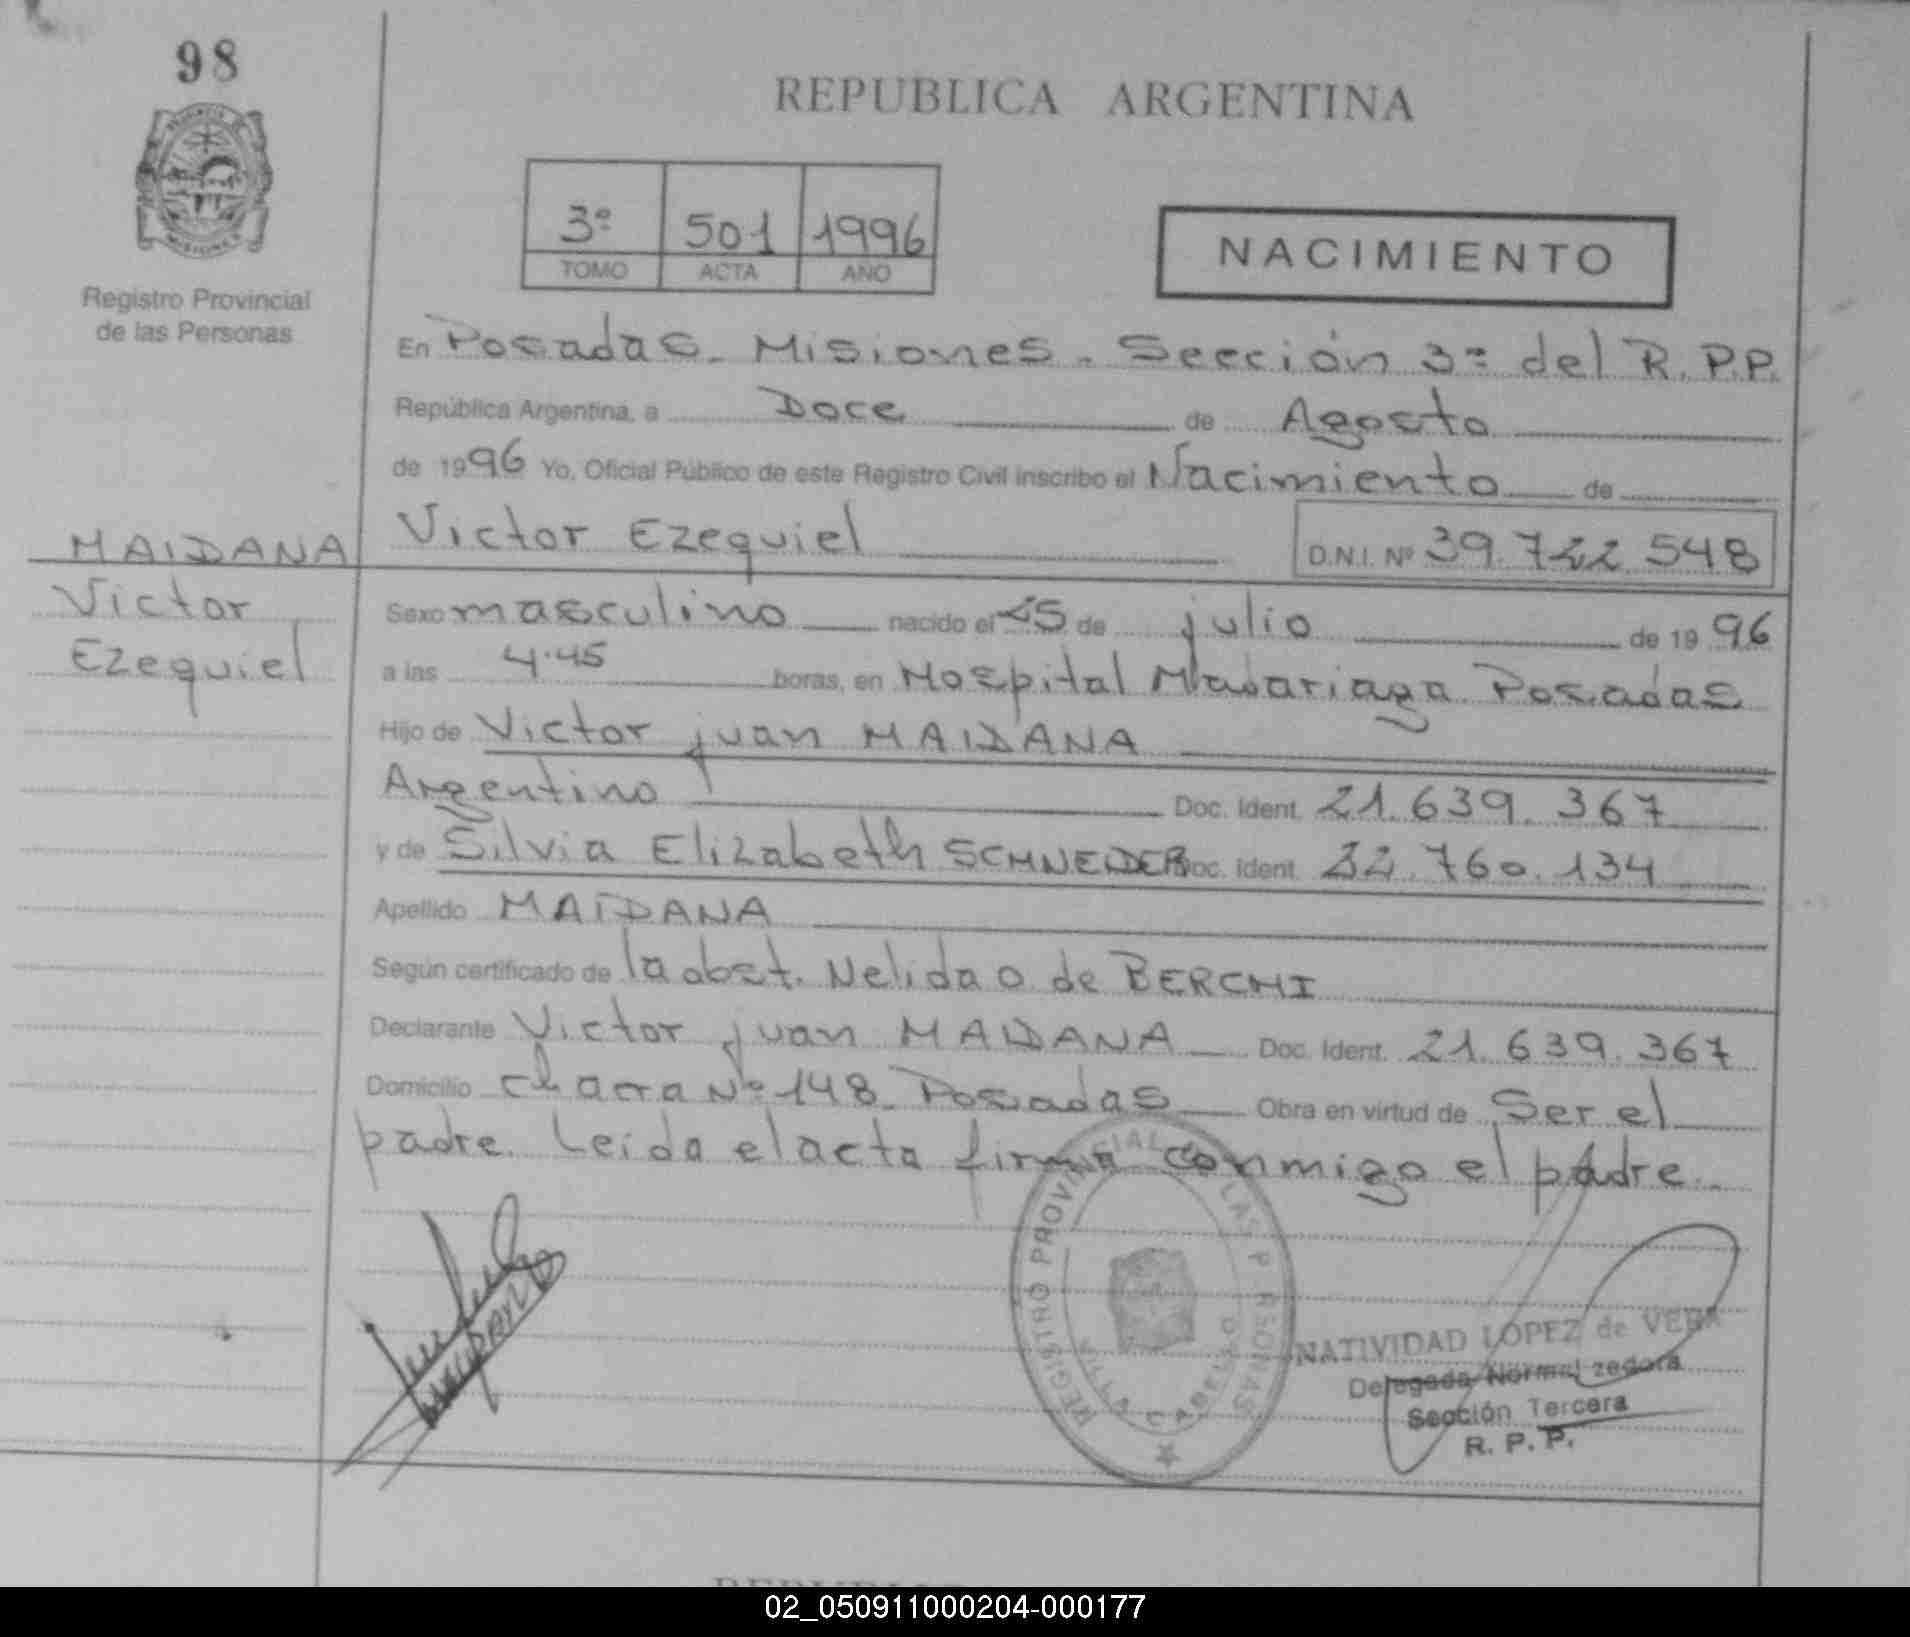 98
REPUBLICA ARGENTINA
3º 501 1996
TOMO ACTA AÑO
NACIMIENTO
MISIONES
Registro Provincial
de las Personas
En Posadas - Misiones - Sección 3ª del R.P.P.
República Argentina, a Doce de Agosto
de 1996 Yo, Oficial Público de este Registro Civil inscribo el Nacimiento de
MAIDANA Victor Ezequiel D.N.I. Nº 39.722.548
Victor
Ezequiel
Sexo masculino nacido el 25 de julio de 1996
a las 4.45 horas, en Hospital Madariaga Posadas
Hijo de Victor juan MAIDANA
Argentino Doc. Ident. 21.639.367
y de Silvia Elizabeth SCHNEIDER Doc. Ident. 22.760.134
Apellido MAIDANA
Según certificado de la obst. Nelida O. de BERCHI
Declarante Victor juan MAIDANA Doc. Ident. 21.639.367
Domicilio chacra Nº 148 Posadas Obra en virtud de Ser el
padre. Leida el acta firma conmigo el padre.
REGISTRO PROVINCIAL DE LAS PERSONAS
VILLA CABELLO
NATIVIDAD LOPEZ de VERA
Delegada Normalizadora
Sección Tercera
R. P. P.
02_050911000204-000177